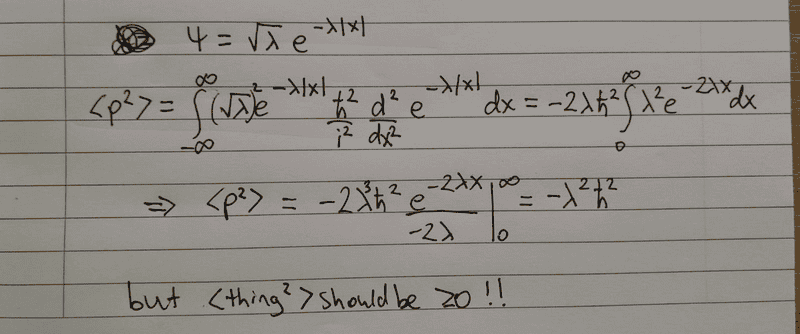 ψ = √λ e^{-λ|x|}
<p²> = ∫_{-∞}^{∞} (√λ)² e^{-λ|x|} ħ²/i² d²/dx² e^{-λ|x|} dx = -2λħ² ∫_{0}^{∞} λ² e^{-2λx} dx
⇒ <p²> = -2λ³ħ² e^{-2λx}/-2λ |_{0}^{∞} = -λ²ħ²
but <thing²> should be ≥0 !!